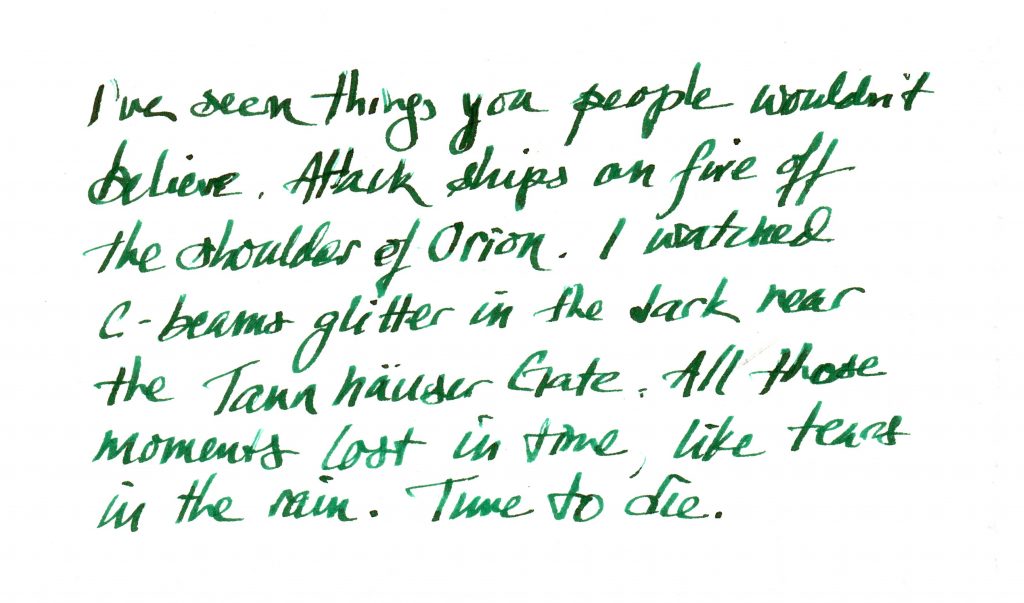 I've seen things you people wouldn't
believe. Attack ships on fire off
the shoulder of Orion. I watched
C-beams glitter in the dark near
the Tannhäuser Gate. All those
moments lost in time, like tears
in the rain. Time to die.